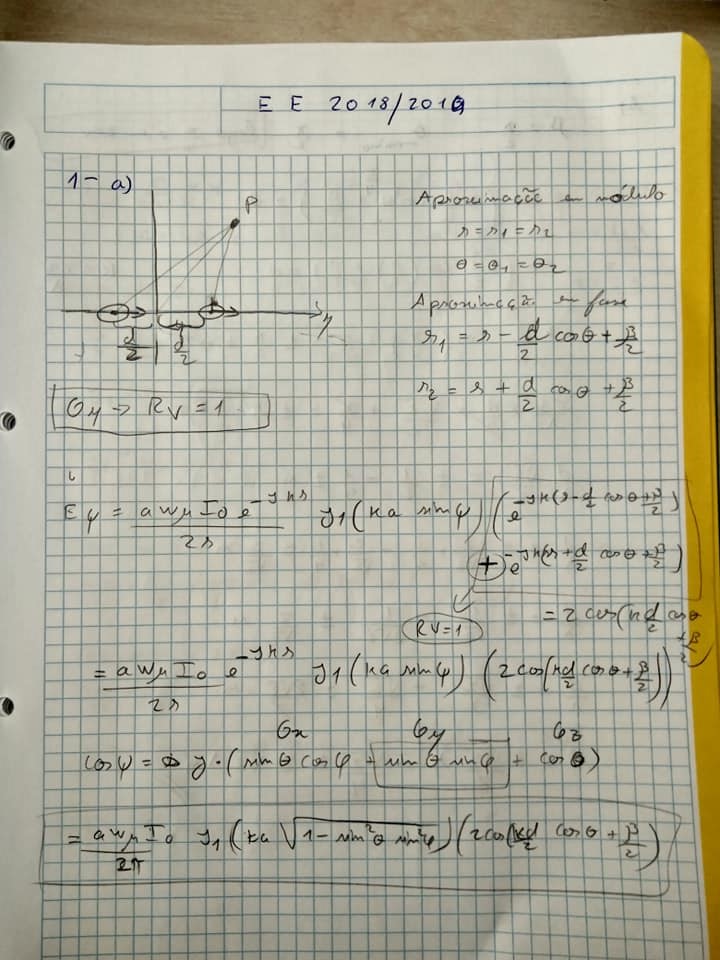 E E 2018/2019
1- a)
P
Aproximação em módulo
r = r₁ = r₂
θ = θ₁ = θ₂
Aproximação em fase
r₁ = r - d/2 cosθ + β/2
r₂ = r + d/2 cosθ + β/2
d/2 d/2 y
Oy → RV = 1
Eψ = awμ I0 e^-jkr / 2r J1(ka sinψ) (e^-jk(r - d/2 cosθ + β/2)
+ e^-jk(r + d/2 cosθ + β/2))
RV=1
= 2 cos(kd/2 cosθ + β/2)
= awμ I0 e^-jkr / 2r J1(ka sinψ) (2 cos(kd/2 cosθ + β/2))
Ox Oy Oz
cosψ = y · (sinθ cosφ + sinθ sinφ + cosθ)
= awμ I0 / 2π J1(ka √(1 - sin²θ sin²φ)) (2cos(kd/2 cosθ + β/2))